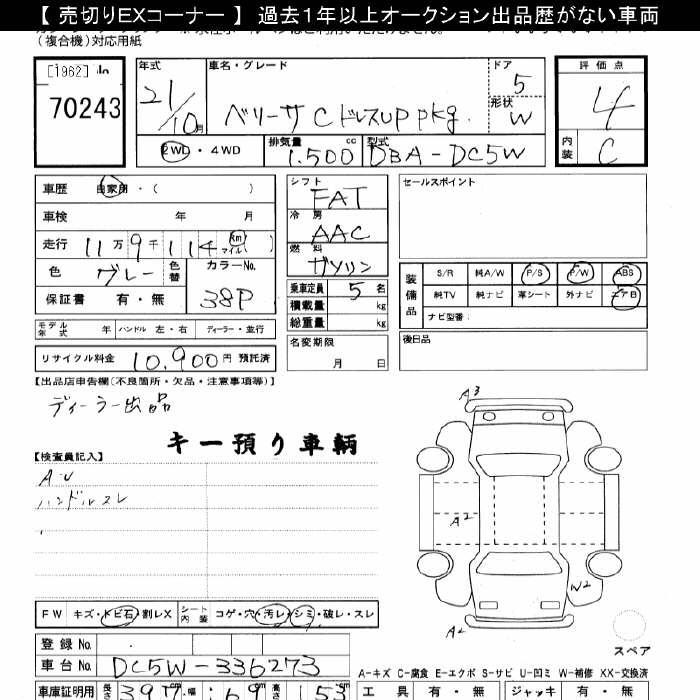 【 売切りEXコーナー 】 過去1年以上オークション出品歴がない車両
(複合機)対応用紙
[1962]
70243
年式
21/10月
車名・グレード
ベリーサ C ドレスUP pkg.
ドア
5
形状
W
評価点
4
内装
C
2WD・4WD
排気量
1.500 cc
型式
DBA-DC5W
車歴 自家用・( )
車検 年 月
走行 11万9千114 Km マイル ( )
色 グレー 色替 カラーNo. 38P
保証書 有・無
シフト
FAT
冷房
AAC
燃料
ガソリン
乗車定員 5 名
積載量 kg
総重量 kg
セールスポイント
装備品
S/R 純A/W P/S P/W ABS
純TV 純ナビ 革シート 外ナビ エアB
ナビ型番:
モデル年式 年 ハンドル 左・右 ディーラー・並行
リサイクル料金 10,900円 預託済
名変期限
月 日
後日品
【出品店申告欄(不良箇所・欠品・注意事項等)】
ディーラー出品
キー預り車輌
【検査員記入】
A・U
ハンドルスレ
A3
A2
W2
A2
スペア
FW キズ・トビ石・割レX シート内装 コゲ・穴・汚レ・シミ・破レ・スレ
登録No.
車台No. DC5W-336273
A-キズ C-腐食 E-エクボ S-サビ U-凹ミ W-補修 XX-交換済
車庫証明用 長さ 397 cm 幅 169 cm 高さ 153
工具 有・無 ジャッキ 有・無